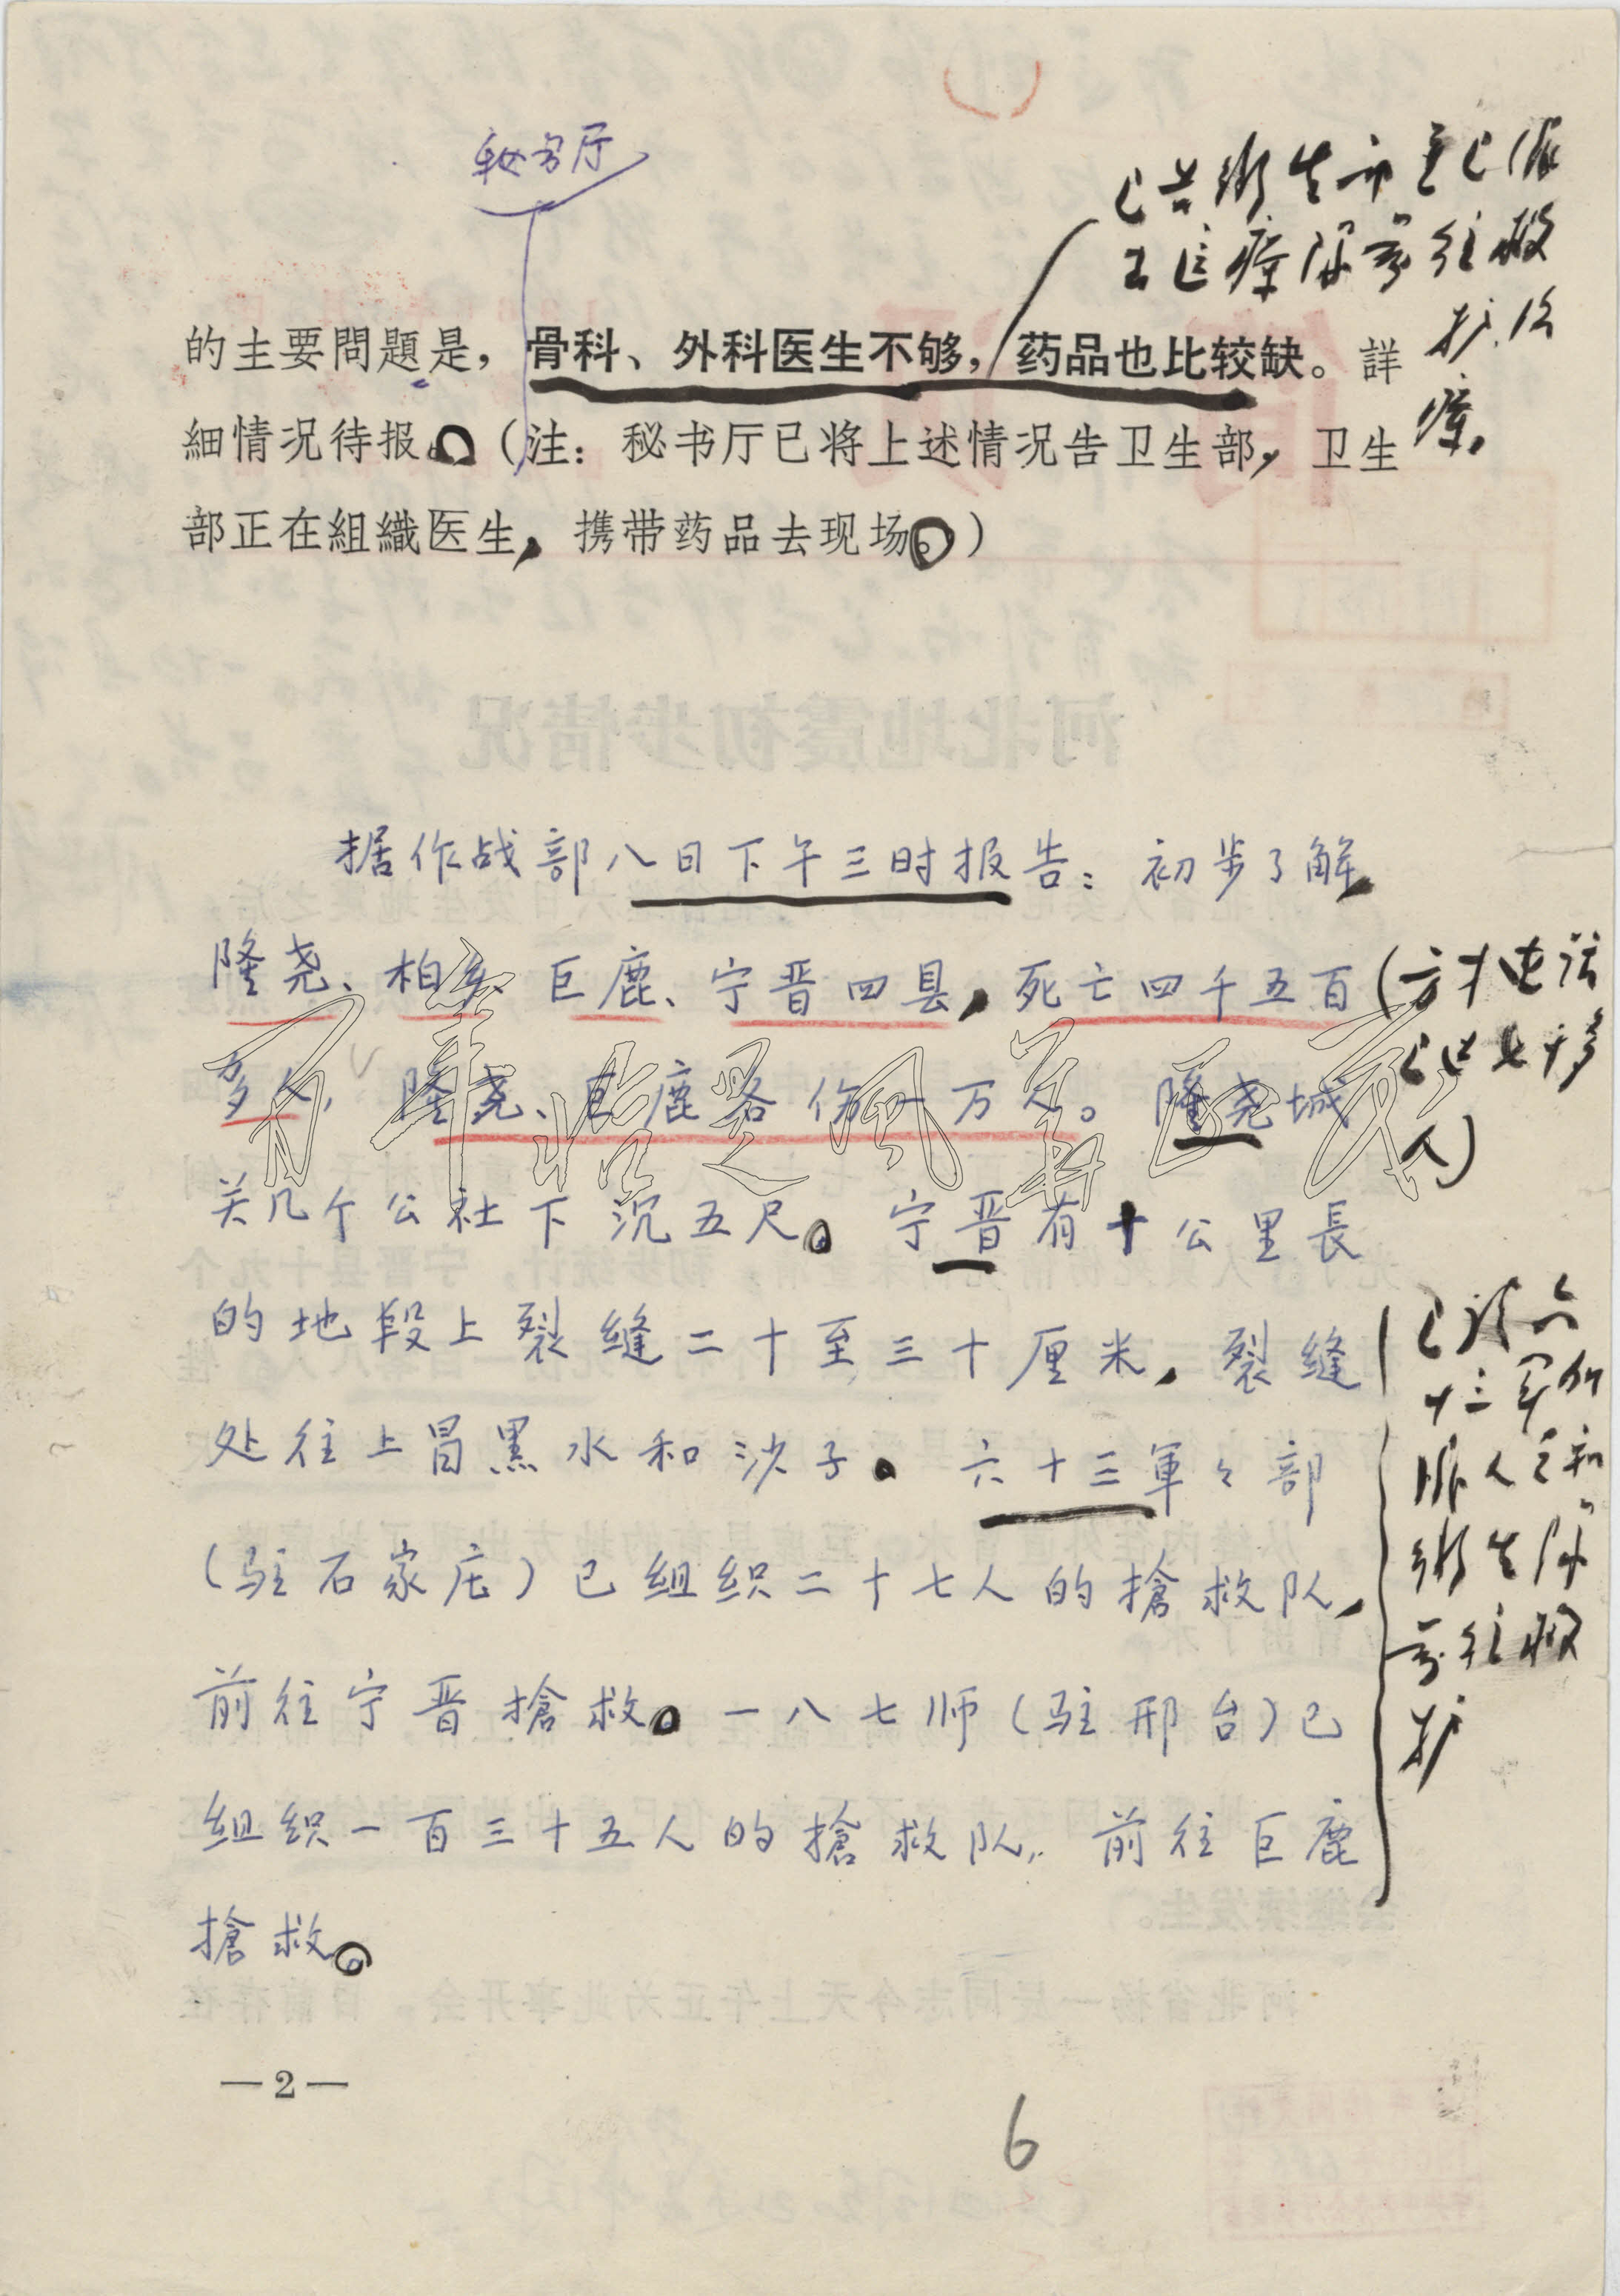 秘书厅
已告衛生部并已派
出医療队前往救
护治
療。
的主要問題是，骨科、外科医生不够，药品也比较缺。詳
細情况待报。（注：秘书厅已将上述情况告卫生部，卫生
部正在組織医生，携带药品去现场。）
据作战部八日下午三时报告：初步了解，
隆尧、柏乡、巨鹿、宁晋四县，死亡四千五百
多人，隆尧、巨鹿各伤一万人。隆尧城
关几个公社下沉五尺。宁晋有十公里長
的地段上裂缝二十至三十厘米，裂缝
处往上冒黑水和沙子。六十三軍々部
（駐石家庄）已组织二十七人的搶救队，
前往宁晋搶救。一八七师（駐邢台）已
组织一百三十五人的搶救队，前往巨鹿
搶救。
（方才电话
人）
十三军
人
衛生队
前往救
护
—2—
6